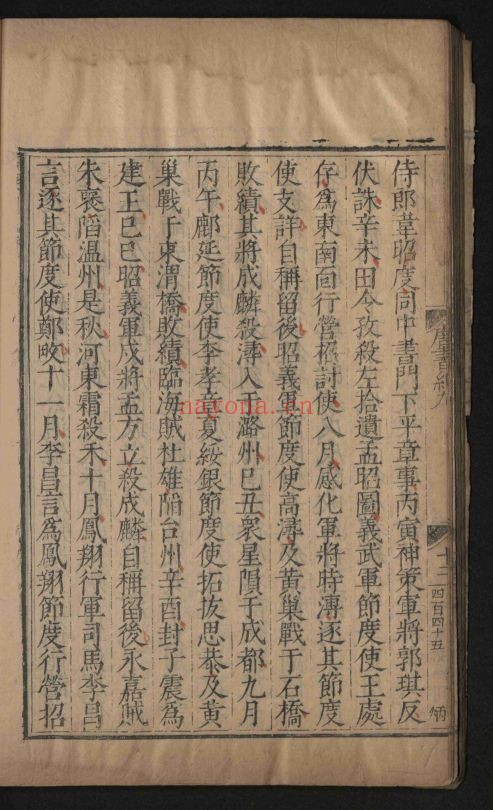 侍郎韋昭度同中書門下平章事丙寅神策軍將郭琪反
伏誅辛未田令孜殺左拾遺孟昭圖義武軍節度使王處
存爲東南面行營招討使八月感化軍將時溥逐其節度
使支詳自稱留後昭義軍節度使高潯及黃巢戰于石橋
敗績其將成麟殺潯入于潞州巳丑衆星隕于成都九月
丙午鄜延節度使李孝章夏綏銀節度使拓拔思恭及黃
巢戰于東渭橋敗績臨海賊杜雄陷台州辛酉封子震爲
建王巳巳昭義軍戍將孟方立殺成麟自稱留後永嘉賊
朱褒陷溫州是秋河東霜殺禾十月鳳翔行軍司馬李昌
言逐其節度使鄭畋十一月李昌言爲鳳翔節度行營招
唐書紀九
十二
四百四十五
nayona.cn